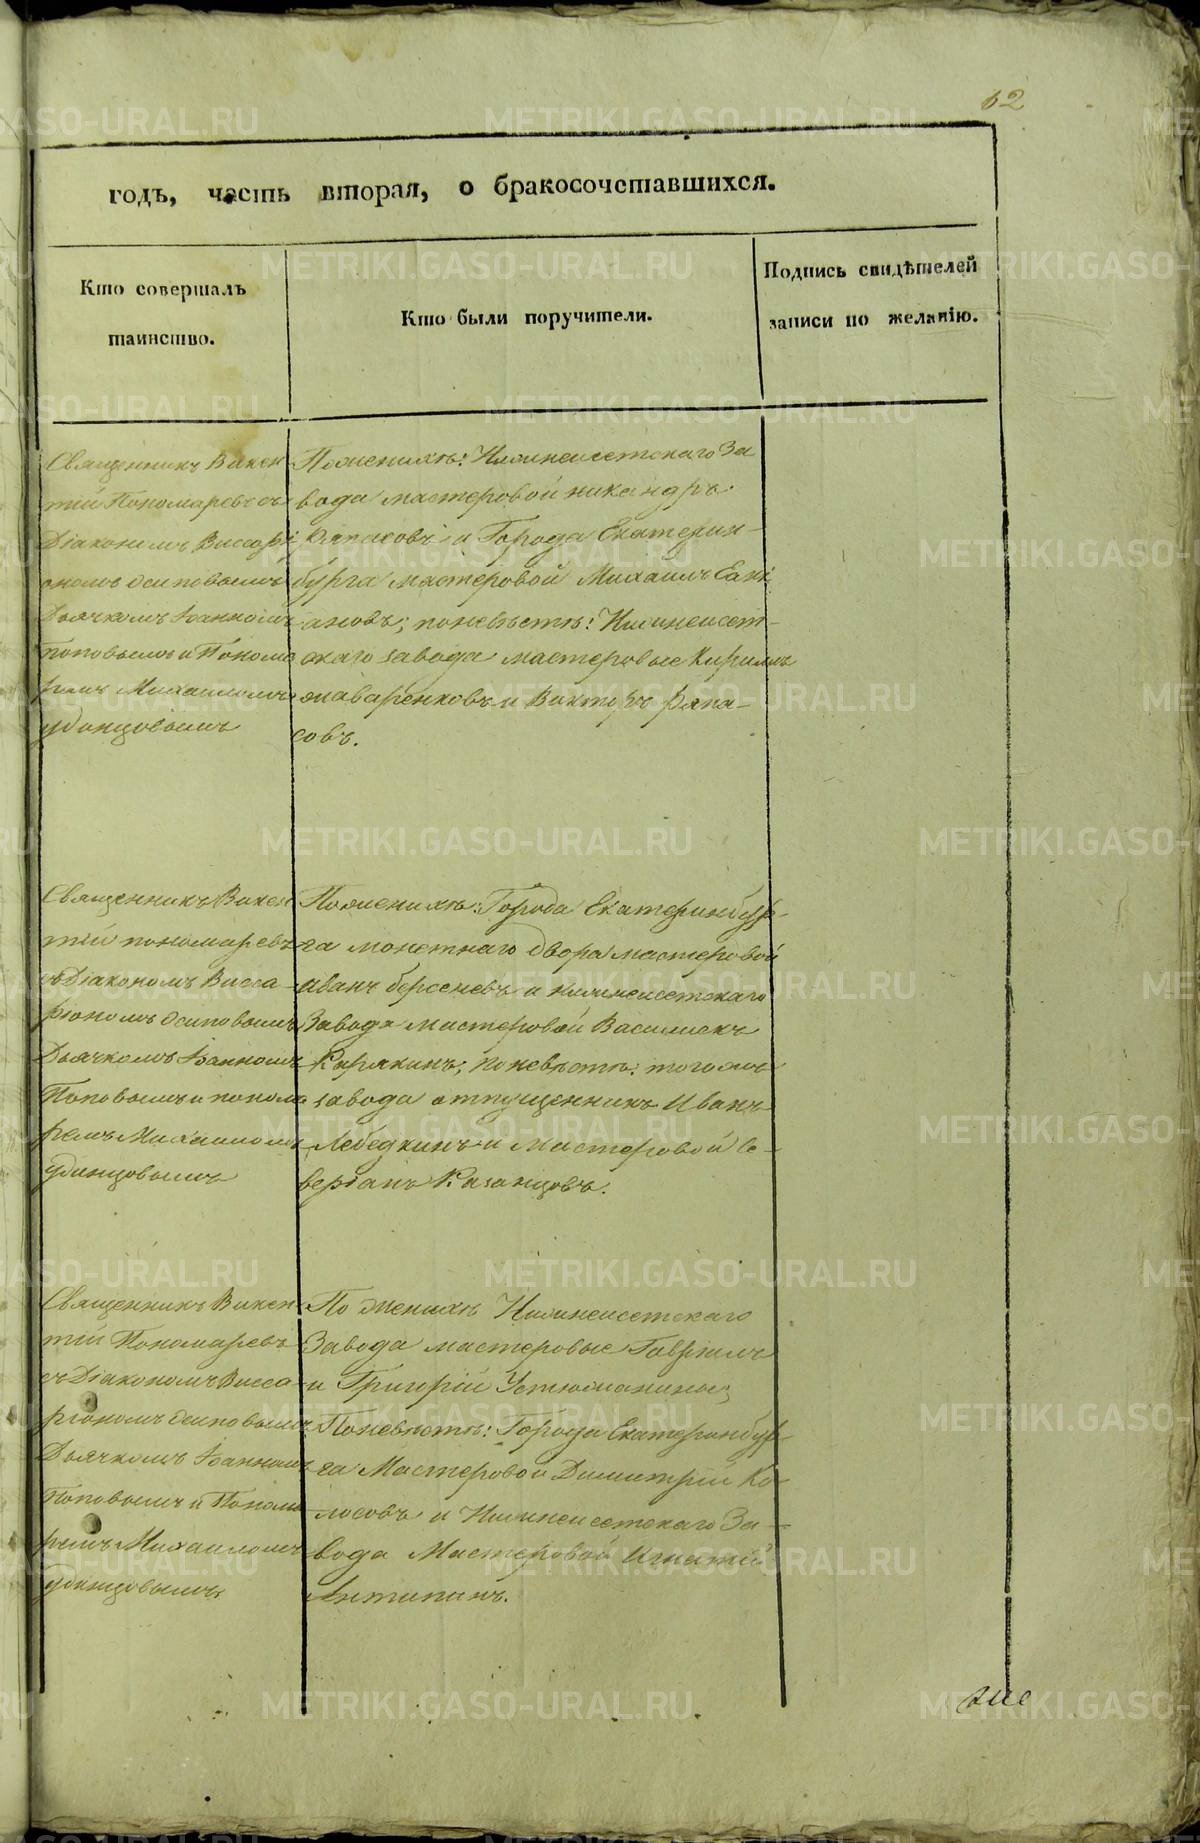 62
годъ, часть вторая, о бракосочетавшихся.
Кто совершалъ
таинство.
Кто были поручители.
Подпись свидѣтелей
записи по желанію.
Священникъ Викен
тій Пономаревъ съ
Діакономъ Виссарі
ономъ Осиповымъ
Дьячкомъ Іоанномъ
Поповымъ и Понома
ремъ Михаиломъ
Удинцовымъ
Поженихѣ: Нижнеисетскаго За
вода мастеровой Никандръ
Ряпасовъ и Города Екатерин-
бурга мастеровой Михаилъ
ановъ; поневѣстѣ: Нижнеисет-
скаго завода мастеровые Кирилъ
и Викторъ Ряпа-
совъ.
Священникъ Викен
тій Пономаревъ
съ Діакономъ Висса
ріономъ Осиповымъ
Дьячкомъ Іоанномъ
Поповымъ и понома
ремъ Михаиломъ
Удинцовымъ
Поженихѣ: Города Екатеринбур-
га монетнаго двора мастеровой
Иванъ Берсеневъ и Нижнеисетскаго
Завода мастеровой Василискъ
Карякинъ; поневѣстѣ: тогожъ
завода отпущенникъ Иванъ
Лебедкинъ и Мастеровой Се-
веріанъ Казанцовъ.
Священникъ Викен
тій Пономаревъ
съ Діакономъ Висса
ріономъ Осиповымъ
Дьячкомъ Іоанномъ
Поповымъ и Понома
ремъ Михаиломъ
Удинцовымъ
По женихѣ Нижнеисетскаго
Завода мастеровые Гавріилъ
и Григорій Устюжанины;
Поневѣстѣ: Города Екатеринбур-
га Мастеровой Димитрій Ко-
лосовъ и Нижнеисетскаго За-
вода Мастеровой Игнатій
Антипинъ.
METRIKI.GASO-URAL.RU